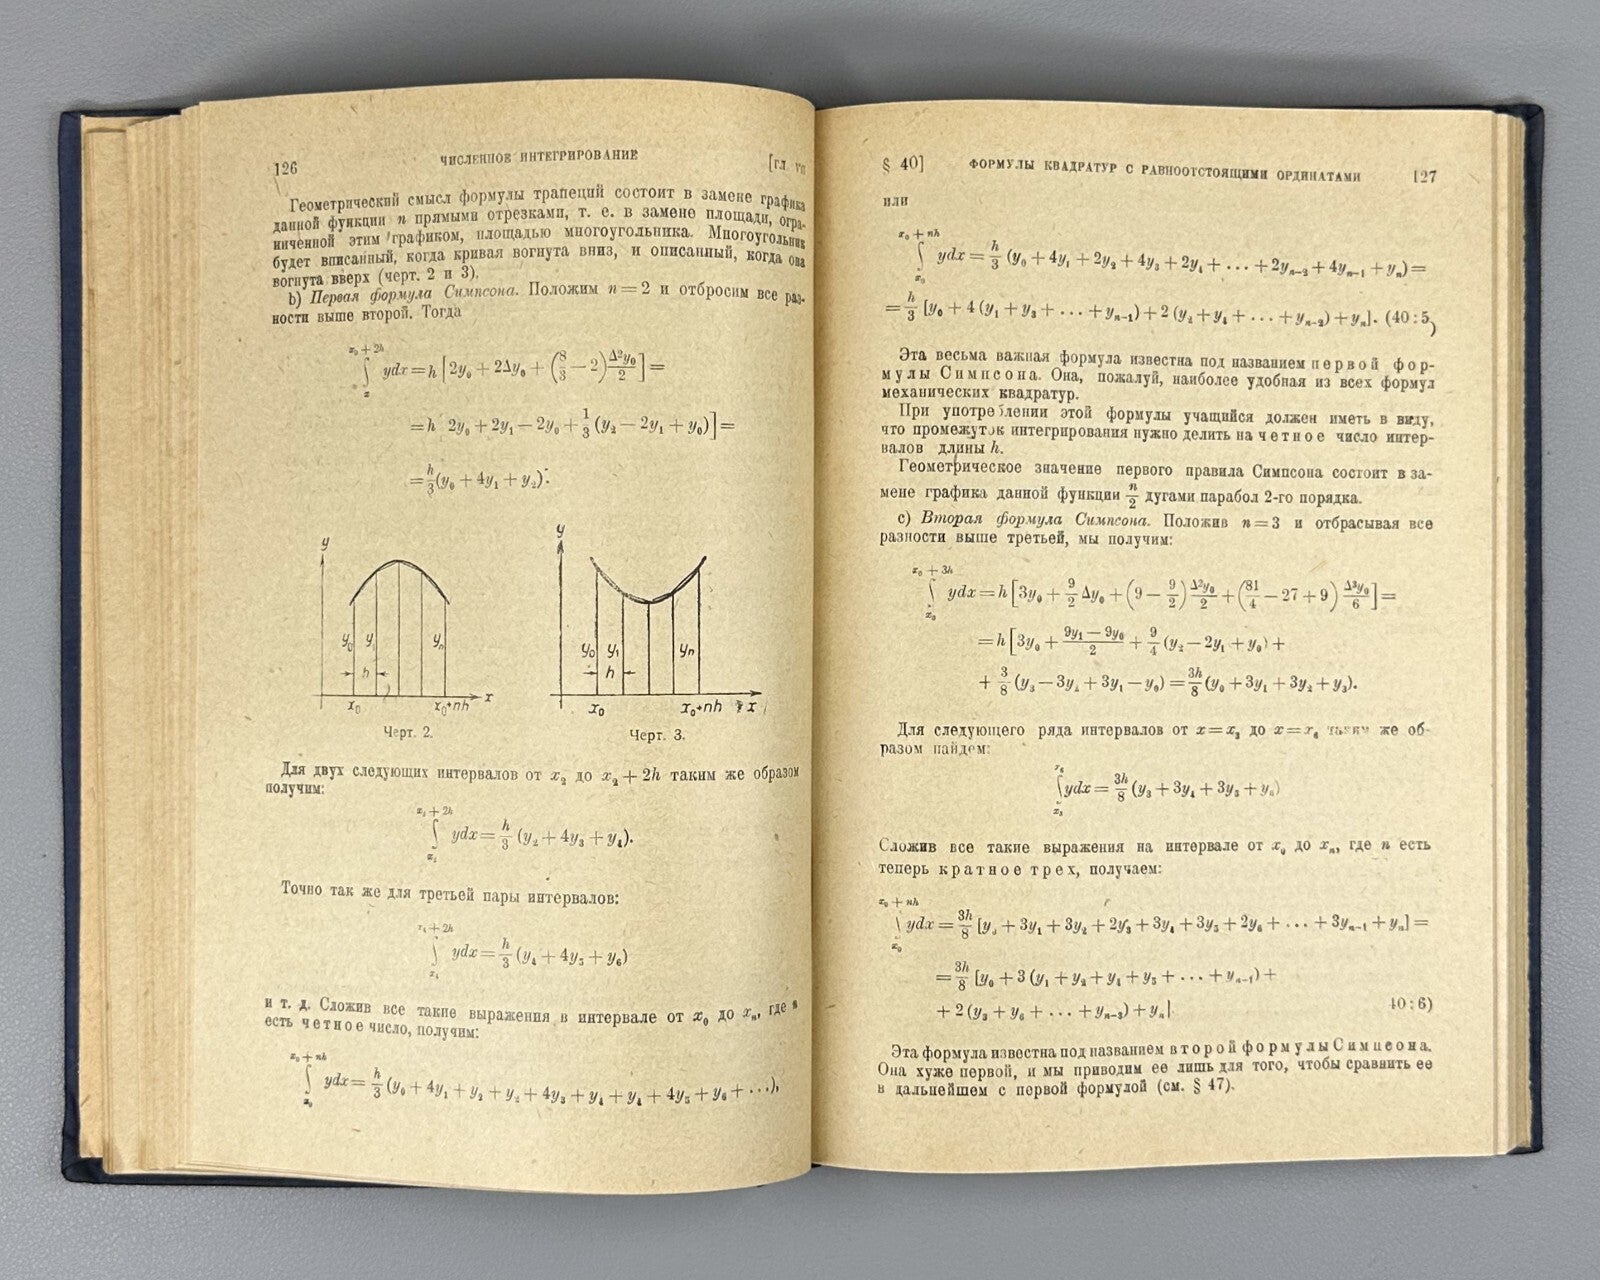 126
ЧИСЛЕННОЕ ИНТЕГРИРОВАНИЕ
[гл. VII
Геометрический смысл формулы трапеций состоит в замене графика
данной функции n прямыми отрезками, т. е. в замене площади, огра-
ниченной этим графиком, площадью многоугольника. Многоугольник
будет вписанный, когда кривая вогнута вниз, и описанный, когда она
вогнута вверх (черт. 2 и 3).
b) Первая формула Симпсона. Положим n = 2 и отбросим все раз-
ности выше второй. Тогда
x₀ + 2h
∫ ydx = h [2y₀ + 2Δy₀ + (8/3 − 2) Δ²y₀/2] =
x
= h 2y₀ + 2y₁ − 2y₀ + 1/3 (y₂ − 2y₁ + y₀)] =
= h/3 (y₀ + 4y₁ + y₂).
y
y₀ y₁ yₙ
h
x₀ x₀+nh x
Черт. 2.
y
y₀ y₁ yₙ
h
x₀ x₀+nh x
Черт. 3.
Для двух следующих интервалов от x₂ до x₂ + 2h таким же образом
получим:
x₂ + 2h
∫ ydx = h/3 (y₂ + 4y₃ + y₄).
x₂
Точно так же для третьей пары интервалов:
x₄ + 2h
∫ ydx = h/3 (y₄ + 4y₅ + y₆)
x₄
и т. д. Сложив все такие выражения в интервале от x₀ до xₙ, где n
есть четное число, получим:
x₀ + nh
∫ ydx = h/3 (y₀ + 4y₁ + y₂ + y₂ + 4y₃ + y₄ + y₄ + 4y₅ + y₆ + ...),
x₀
§ 40]
ФОРМУЛЫ КВАДРАТУР С РАВНООТСТОЯЩИМИ ОРДИНАТАМИ
127
или
x₀ + nh
∫ ydx = h/3 (y₀ + 4y₁ + 2y₂ + 4y₃ + 2y₄ + ... + 2yₙ₋₂ + 4yₙ₋₁ + yₙ) =
x₀
= h/3 [y₀ + 4 (y₁ + y₃ + ... + yₙ₋₁) + 2 (y₂ + y₄ + ... + yₙ₋₂) + yₙ]. (40:5)
Эта весьма важная формула известна под названием первой фор-
мулы Симпсона. Она, пожалуй, наиболее удобная из всех формул
механических квадратур.
При употреблении этой формулы учащийся должен иметь в виду,
что промежуток интегрирования нужно делить на четное число интер-
валов длины h.
Геометрическое значение первого правила Симпсона состоит в за-
мене графика данной функции n/2 дугами парабол 2-го порядка.
c) Вторая формула Симпсона. Положив n = 3 и отбрасывая все
разности выше третьей, мы получим:
x₀ + 3h
∫ ydx = h [3y₀ + 9/2 Δy₀ + (9 − 9/2) Δ²y₀/2 + (81/4 − 27 + 9) Δ³y₀/6] =
x₀
= h [3y₀ + (9y₁ − 9y₀)/2 + 9/4 (y₂ − 2y₁ + y₀) +
+ 3/8 (y₃ − 3y₂ + 3y₁ − y₀) = 3h/8 (y₀ + 3y₁ + 3y₂ + y₃).
Для следующего ряда интервалов от x = x₃ до x = x₆ таким же об-
разом найдем:
x₆
∫ ydx = 3h/8 (y₃ + 3y₄ + 3y₅ + y₆)
x₃
Сложив все такие выражения на интервале от x₀ до xₙ, где n есть
теперь кратное трех, получаем:
x₀ + nh
∫ ydx = 3h/8 [y₀ + 3y₁ + 3y₂ + 2y₃ + 3y₄ + 3y₅ + 2y₆ + ... + 3yₙ₋₁ + yₙ] =
x₀
= 3h/8 [y₀ + 3 (y₁ + y₂ + y₄ + y₅ + ... + yₙ₋₁) +
+ 2 (y₃ + y₆ + ... + yₙ₋₃) + yₙ]. 40:6)
Эта формула известна под названием второй формулы Симпсона.
Она хуже первой, и мы приводим ее лишь для того, чтобы сравнить ее
в дальнейшем с первой формулой (см. § 47).